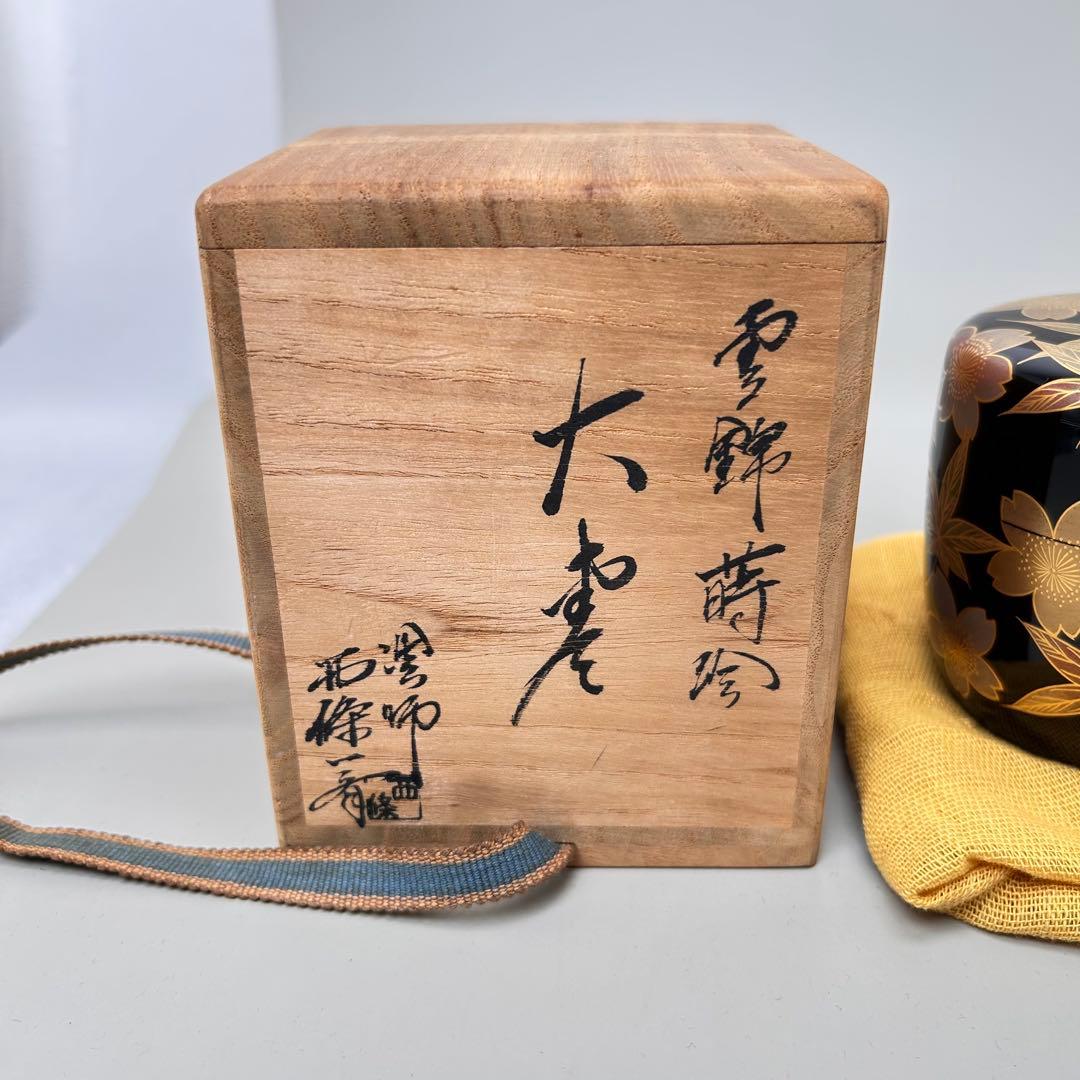 雲錦蒔絵
大棗
塗師
西條一斎
西條